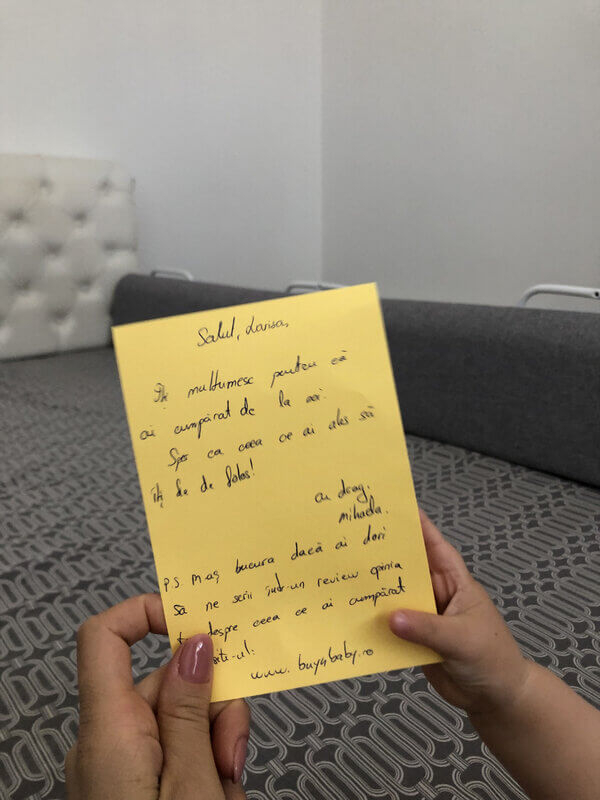 Salut, Larisa,
Îți mulțumesc pentru că
ai cumpărat de la noi.
Sper ca ceea ce ai ales să
îți fie de folos!
Cu drag,
Mihaela.
P.S M-aș bucura dacă ai dori
să ne scrii într-un review opinia
despre ceea ce ai cumpărat
site-ul:
www.buynbaby.ro